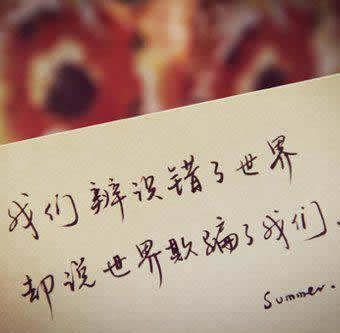 我们辨识错了世界
却说世界欺骗了我们、
Summer.